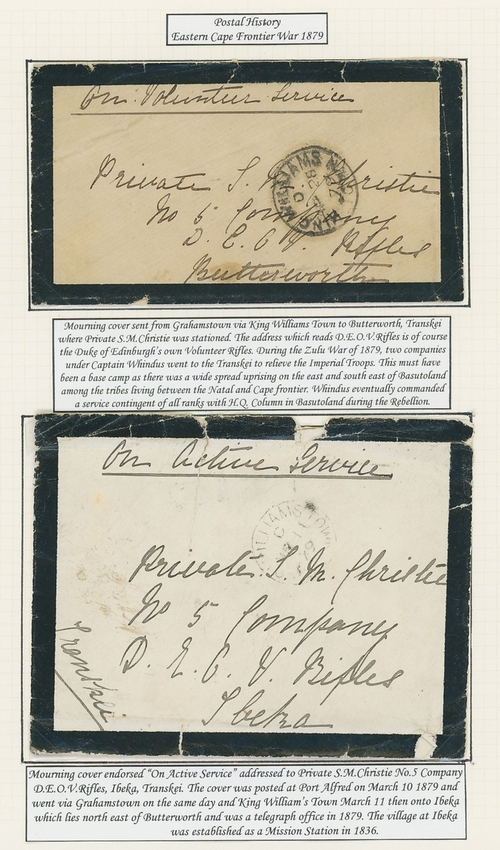 Postal History
Eastern Cape Frontier War 1879
On Volunteer Service
Private S. M. Christie
No 5 Company
D. E. O V. Rifles
Butterworth
KING WILLIAMS TOWN
Mourning cover sent from Grahamstown via King Williams Town to Butterworth, Transkei
where Private S.M.Christie was stationed. The address which reads D.E.O.V.Rifles is of course
the Duke of Edinburgh's own Volunteer Rifles. During the Zulu War of 1879, two companies
under Captain Whindus went to the Transkei to relieve the Imperial Troops. This must have
been a base camp as there was a wide spread uprising on the east and south east of Basutoland
among the tribes living between the Natal and Cape frontier. Whindus eventually commanded
a service contingent of all ranks with H.Q. Column in Basutoland during the Rebellion.
On Active Service
WILLIAMS TOWN
Private S. M. Christie
No 5 Company
D. E. O. V. Rifles
Ibeka
Transkei
Mourning cover endorsed "On Active Service" addressed to Private S.M.Christie No.5 Company
D.E.O.V.Rifles, Ibeka, Transkei. The cover was posted at Port Alfred on March 10 1879 and
went via Grahamstown on the same day and King William's Town March 11 then onto Ibeka
which lies north east of Butterworth and was a telegraph office in 1879. The village at Ibeka
was established as a Mission Station in 1836.